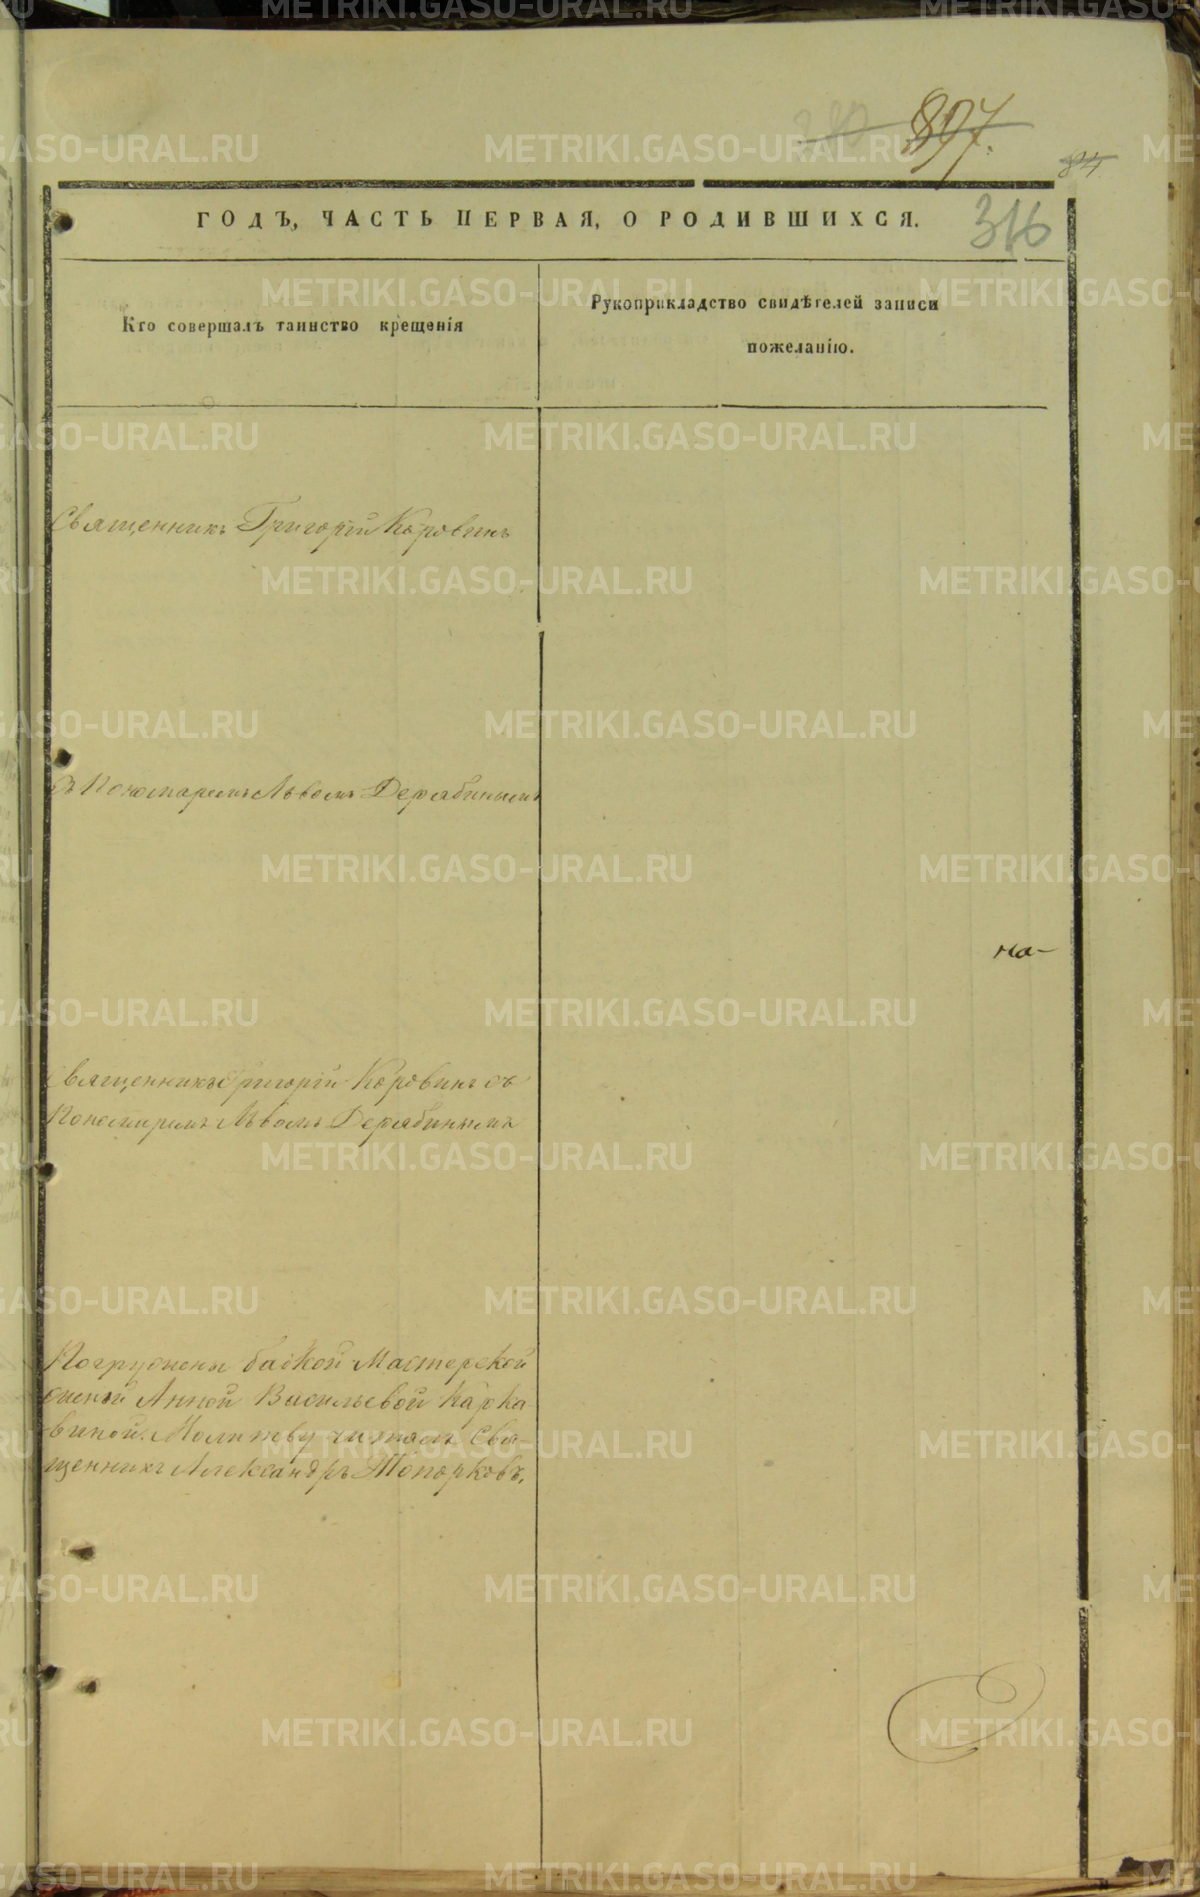 897.
84
ГОДЪ, ЧАСТЬ ПЕРВАЯ, О РОДИВШИХСЯ.
316
Кто совершалъ таинство крещенія
Рукоприкладство свидѣтелей записи
пожеланію.
Священникъ Григорій Коровинъ
Съ Пономаремъ Львомъ Дерябинымъ
на-
Священникъ Григорій Коровинъ съ
Пономаремъ Львомъ Дерябинымъ
Погружены бабкой Мастерской
женой Анной Васильевой Карка
виной. Молитву читалъ Свя-
щенникъ Александръ Топорковъ.
METRIKI.GASO-URAL.RU